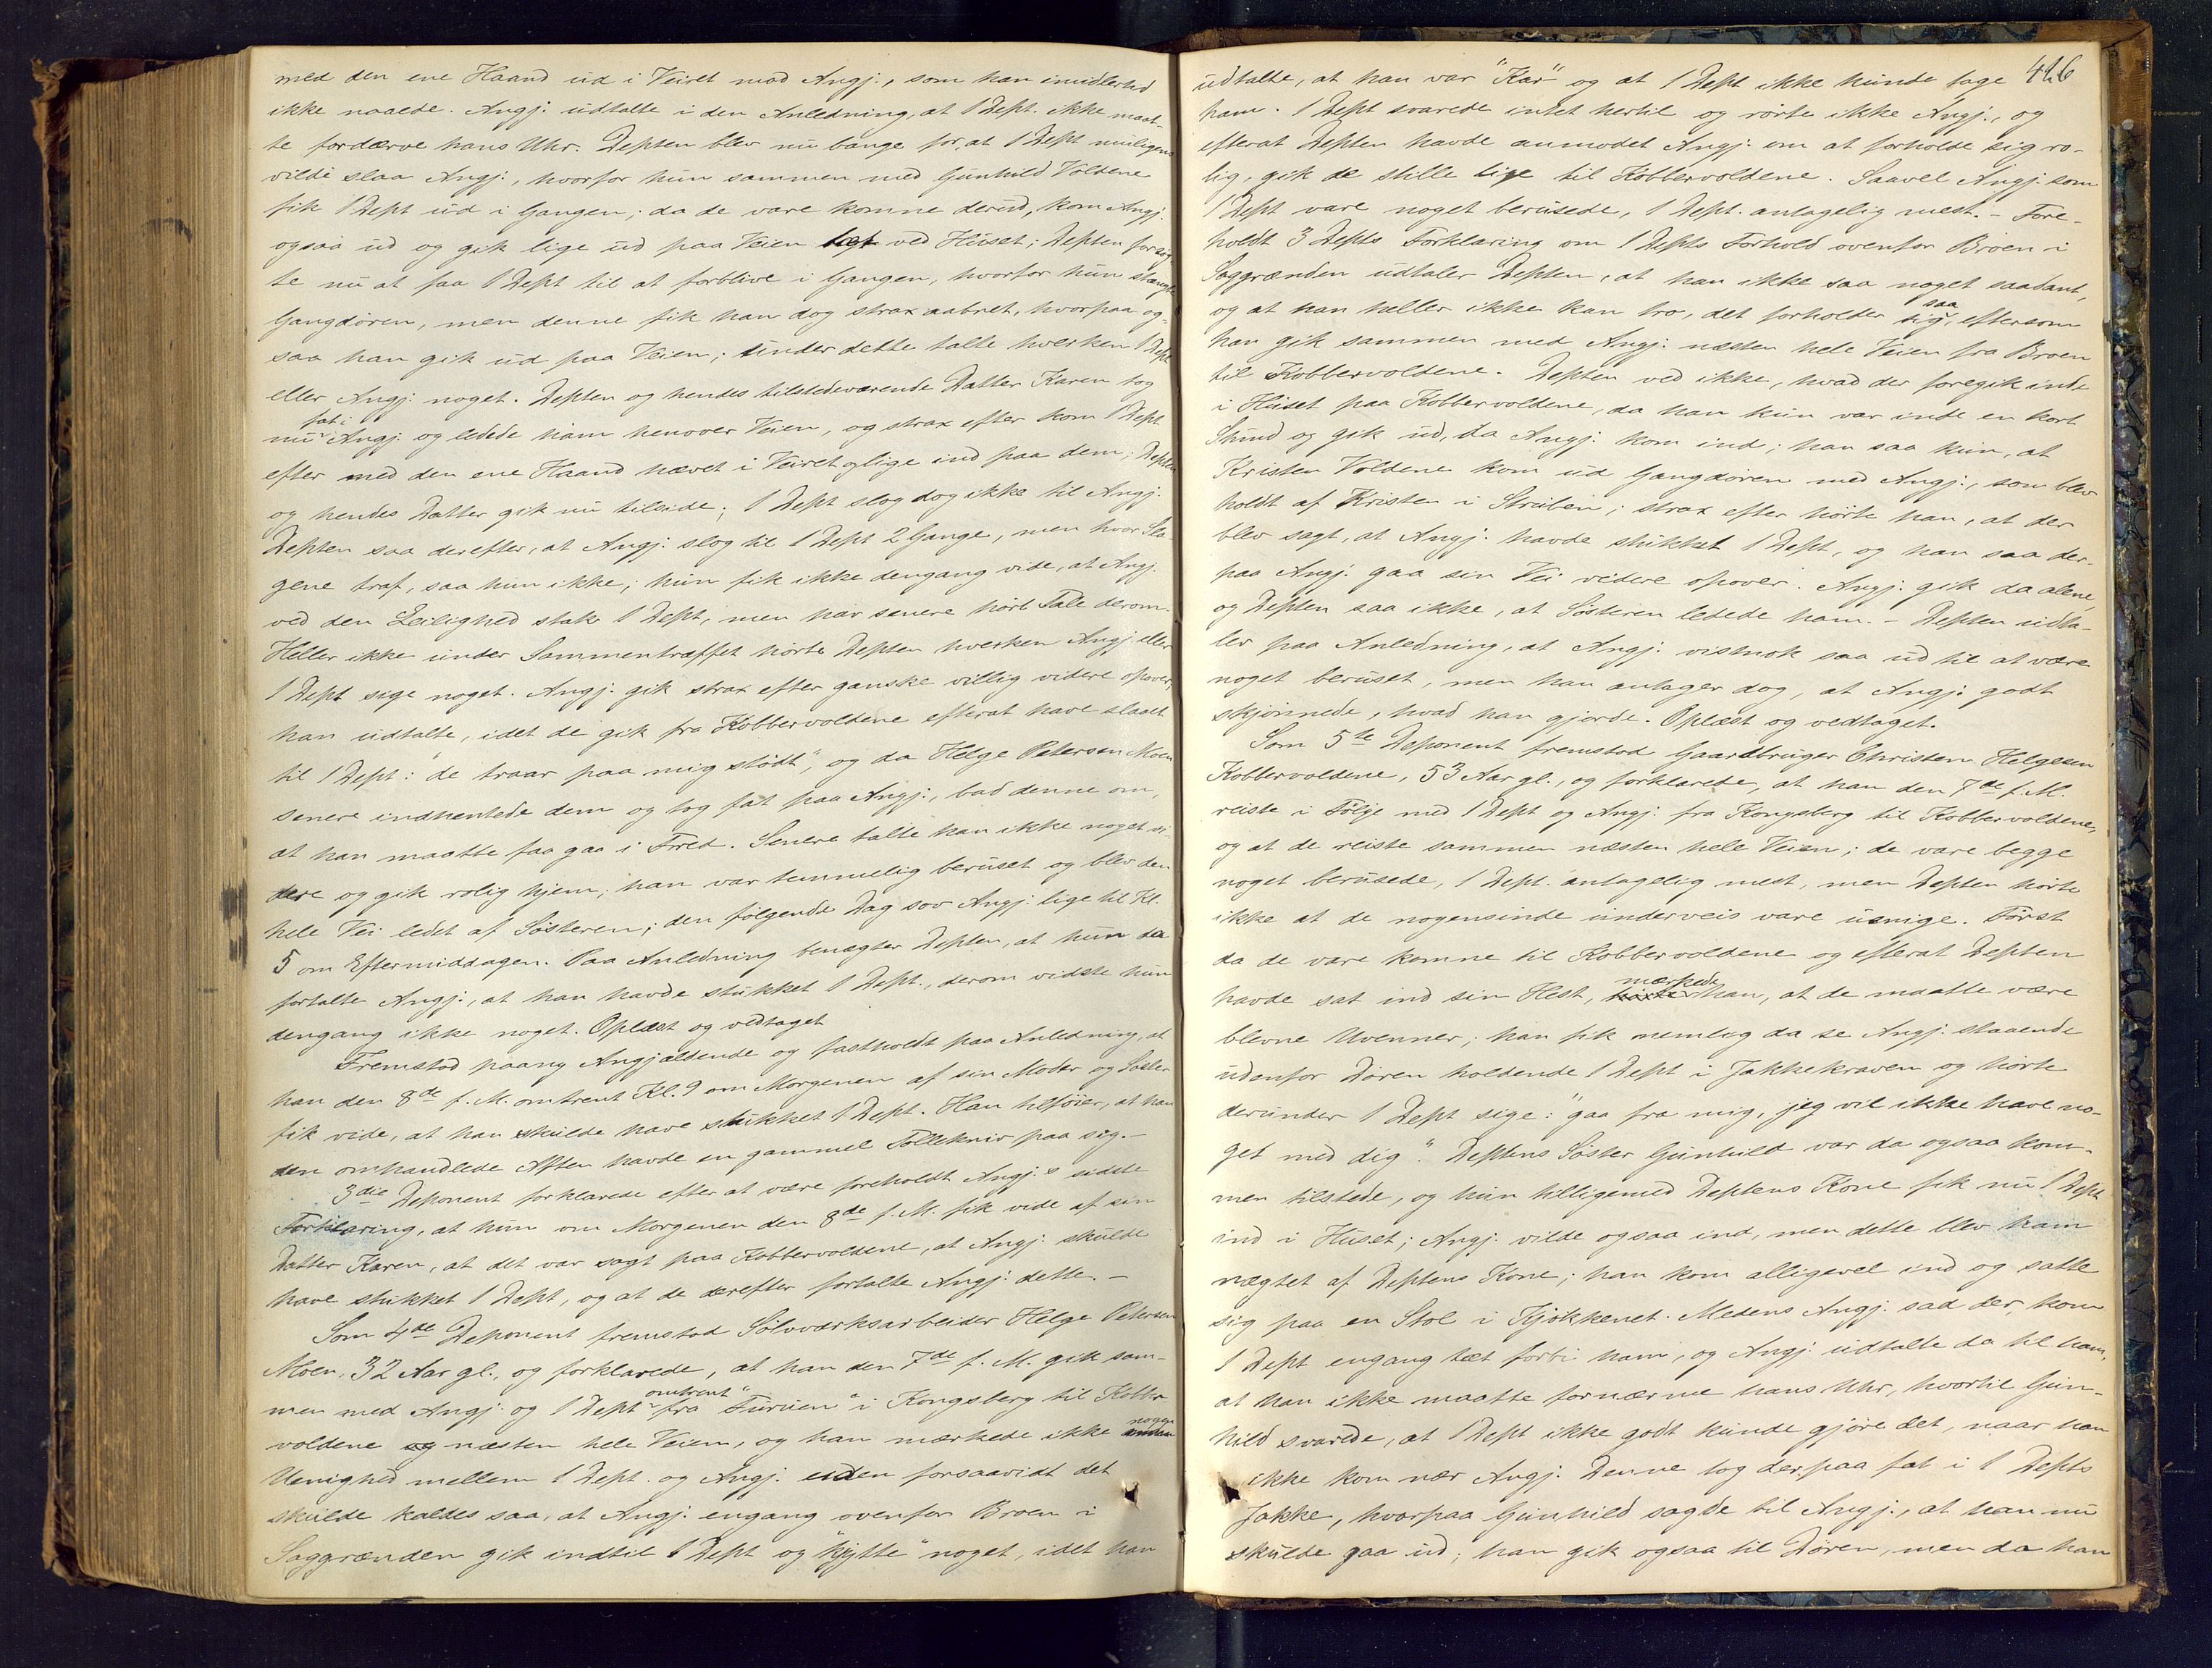 med den ene Haand ud i Veiret mod Angj., som han imidlertid
ikke naaede. Angj. udtalte i den Anledning, at 1 Dept. ikke maat-
te fordærve hans Uhr. Depten blev nu bange for, at 1 Dept muligens
vilde slaa Angj., hvorfor hun sammen med Gunhild Voldene
fik 1 Dept ud i Gangen; da de vare komne derud, kom Angj.
ogsaa ud og gik lige ud paa Veien tæt ved Huset; Depten forsøg-
te nu at faa 1 Dept til at forblive i Gangen, hvorfor hun stængte
Gangdøren, men denne fik han dog strax aabnet, hvorpaa og-
saa han gik ud paa Veien; under dette talte hverken 1 Dept
eller Angj. noget. Depten og hendes tilstedeværende Datter Karen tog
nu fat i Angj. og ledede ham henover Veien, og strax efter kom 1 Dept
efter med den ene Haand hævet i Veiret og lige ind paa dem; Depten
og hendes Datter gik nu tilside; 1 Dept slog dog ikke til Angj.
Depten saa derefter, at Angj. slog til 1 Dept 2 Gange, men hvor Sla-
gene traf, saa hun ikke; hun fik ikke dengang vide, at Angj.
ved den Leilighed stak 1 Dept, men har senere hørt Tale derom.
Heller ikke under Sammentræffet hørte Depten hverken Angj. eller
1 Dept sige noget. Angj. gik strax efter ganske villig videre opover;
han udtalte, idet de gik fra Kobbervoldene efterat have slaaet
til 1 Dept: "de traar paa mig stødt", og da Helge Petersen Moen
senere indhentede dem og tog fat paa Angj., bad denne om,
at han maatte faa gaa i Fred. Senere talte han ikke noget vi-
dere og gik rolig hjem; han var temmelig beruset og blev den
hele Vei ledet af Søsteren; den følgende Dag sov Angj. lige til Kl.
5 om Eftermiddagen. Paa Anledning benægter Depten, at hun da
fortalte Angj., at han havde stukket 1 Dept., derom vidste hun
dengang ikke noget. Oplæst og vedtaget
Fremstod paany Angjældende og fastholdt paa Anledning, at
han den 8de f. M. omtrent Kl. 9 om Morgenen af sin Moder og Søster
fik vide, at han skulde have stukket 1 Dept. Han tilføier, at han
den omhandlede Aften havde en gammel Tollekniv paa sig.–
3die Deponent forklarede efter at være foreholdt Angj.s sidste
Forklaring, at hun om Morgenen den 8de f. M. fik vide af sin
Datter Karen, at det var sagt paa Kobbervoldene, at Angj. skulde
have stukket 1 Dept, og at de derefter fortalte Angj. dette.–
Som 4de Deponent fremstod Sølvværksarbeider Helge Petersen
Moen, 32 Aar gl., og forklarede, at han den 7de f. M. gik sam-
men med Angj. og 1 Dept omtrent fra "Furuen" i Kongsberg til Kobber-
voldene og næsten hele Veien, og han mærkede ikke nogen
Uenighed mellem 1 Dept. og Angj. uden forsaavidt det
skulde kaldes saa, at Angj. engang ovenfor Broen i
Saggrænden gik indtil 1 Dept og "hytte" noget, idet han
426
udtalte, at han var "Kar" og at 1 Dept ikke kunde tage
ham. 1 Dept svarede intet hertil og rørte ikke Angj., og
efterat Depten havde anmodet Angj. om at forholde sig ro-
lig, gik de stille lige til Kobbervoldene. Saavel Angj. som
1 Dept vare noget berusede, 1 Dept. antagelig mest. – Fore-
holdt 3 Depts Forklaring om 1 Depts Forhold ovenfor Broen i
Saggrænden udtaler Depten, at han ikke saa noget saadant,
og at han heller ikke kan tro, det forholder sig saa, eftersom
han gik sammen med Angj. næsten hele Veien fra Broen
til Kobbervoldene. Depten ved ikke, hvad der foregik inde
i Huset paa Kobbervoldene, da han kun var inde en kort
Stund og gik ud, da Angj. kom ind; han saa kun, at
Kristen Voldene kom ud Gangdøren med Angj., som blev
holdt af Kristen i Struben; strax efter hørte han, at der
blev sagt, at Angj. havde stukket 1 Dept, og han saa der-
paa Angj. gaa sin Vei videre opover. Angj. gik da alene,
og Depten saa ikke, at Søsteren ledede ham. – Depten udta-
lev paa Anledning, at Angj. vistnok saa ud til at være
noget beruset, men han antager dog, at Angj. godt
skjønnede, hvad han gjorde. Oplæst og vedtaget.
Som 5te Deponent fremstod Gaardbruger Christen Helgesen
Kobbervoldene, 53 Aar gl., og forklarede, at han den 7de f. M.
reiste i Følge med 1 Dept og Angj. fra Kongsberg til Kobbervoldene,
og at de reiste sammen næsten hele Veien; de vare begge
noget berusede, 1 Dept. antagelig mest, men Depten hørte
ikke at de nogensinde underveis vare uenige. Først
da de vare komne til Kobbervoldene og efterat Depten
havde sat ind sin Hest, hørte mærkede han, at de maatte være
blevne Uvenner; han fik nemlig da se Angj. staaende
udenfor Døren holdende 1 Dept i Jakkekraven og hørte
derunder 1 Dept sige: "gaa fra mig, jeg vil ikke have no-
get med dig". Deptens Søster Gunhild var da ogsaa kom-
men tilstede, og hun tilligemed Deptens Kone fik nu 1 Dept
ind i Huset; Angj. vilde ogsaa ind, men dette blev ham
nægtet af Deptens Kone; han kom alligevel ind og satte
sig paa en Stol i Kjøkkenet. Medens Angj. sad der, kom
1 Dept engang tæt forbi ham, og Angj. udtalte da til ham,
at han ikke maatte fornærme hans Uhr, hvortil Gun-
hild svarede, at 1 Dept ikke godt kunde gjøre det, naar han
ikke kom nær Angj. Denne tog derpaa fat i 1 Depts
Jakke, hvorpaa Gunhild sagde til Angj., at han nu
skulde gaa ud; han gik ogsaa til Døren, men da han